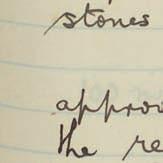 stones
approv
the re